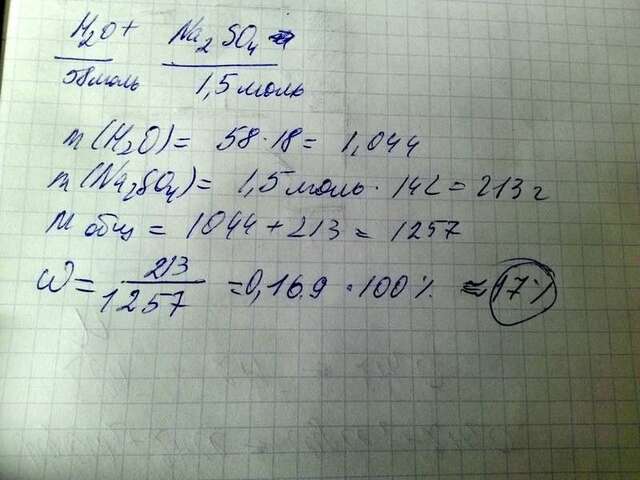 H₂O + Na₂SO₄
58 моль 1,5 моль
m(H₂O) = 58 · 18 = 1,044
m(Na₂SO₄) = 1,5 моль · 142 = 213 г
M общ = 1044 + 213 = 1257
ω = 213/1257 = 0,169 · 100% ≈ 17%